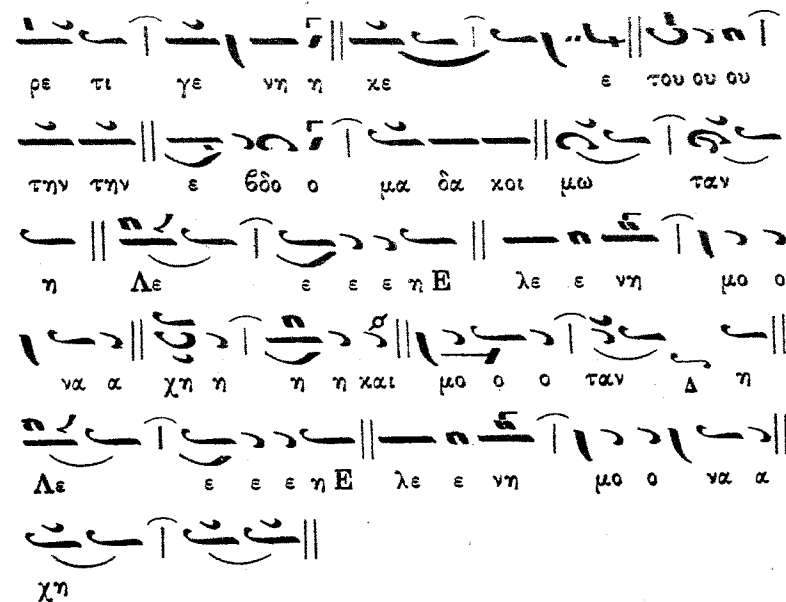 ρε τι γε νη η κε ε του ου ου
την την ε βδο ο μα δα κοι μω ταν
η Λε ε ε ε η Ε λε ε νη μο ο
να α χη η η η και μο ο ο ταν Δ η
Λε ε ε ε η Ε λε ε νη μο ο να α
χη